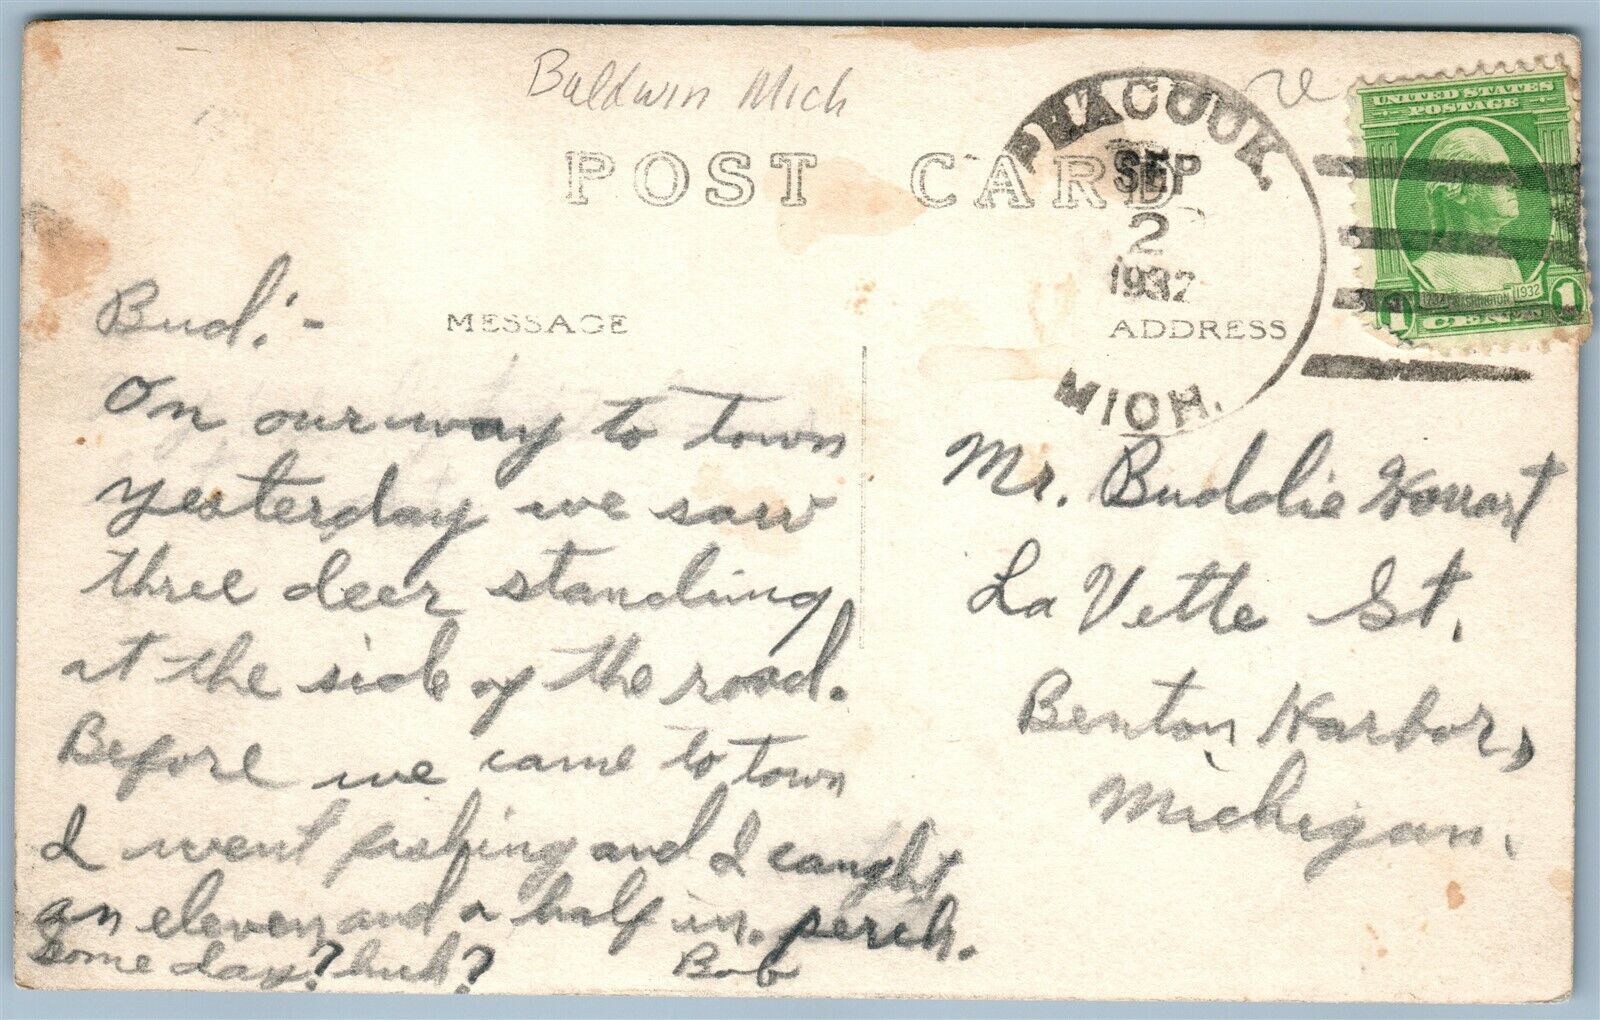 Baldwin Mich
POST CARD
PEACOCK.
SEP
2
1932
MICH.
UNITED STATES
POSTAGE
1732 WASHINGTON 1932
1 CENT 1
MESSAGE
ADDRESS
Bud:-
On our way to town
yesterday we saw
three deer standing
at the side of the road.
Before we came to town
I went fishing and I caught
an eleven and a half in. perch.
Some day? huh? Bob
Mr. Buddie
La Vette St.
Benton Harbor,
Michigan.